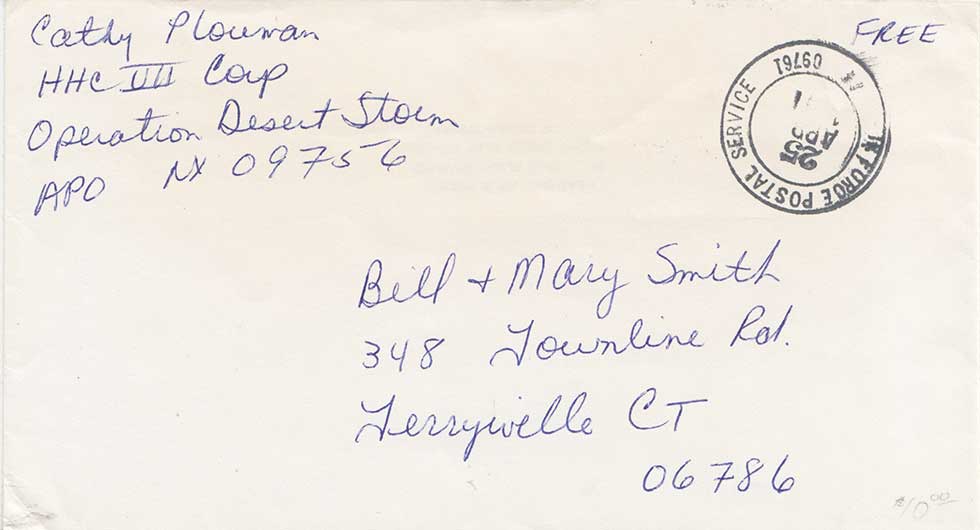 Cathy Plowman
HHC VII Corp
Operation Desert Storm
APO NY 09756
FREE
AIR FORCE POSTAL SERVICE
09761
25
Bill + Mary Smith
348 Townline Rd.
Terryville CT
06786
$10.00